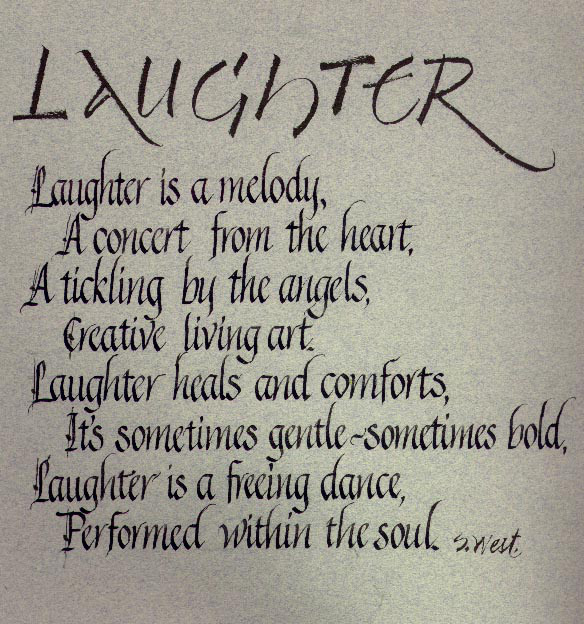 LAUGHTER
Laughter is a melody,
A concert from the heart,
A tickling by the angels,
Creative living art.
Laughter heals and comforts,
It's sometimes gentle~sometimes bold,
Laughter is a freeing dance,
Performed within the soul. S. West.